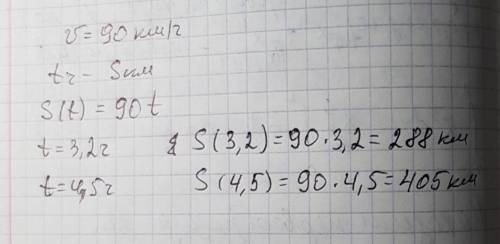 v = 90 км/ч
t ч – S км
S(t) = 90t
t = 3,2 ч S(3,2) = 90·3,2 = 288 км
t = 4,5 ч S(4,5) = 90·4,5 = 405 км